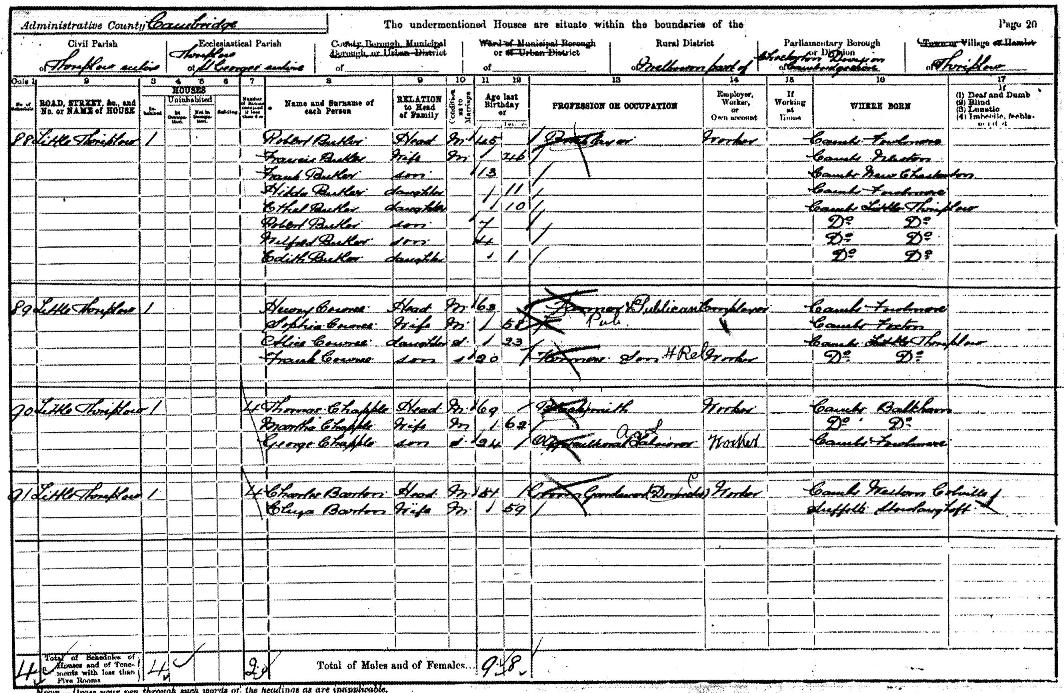 Administrative County Cambridge The undermentioned Houses are situate within the boundaries of the Page 20
Civil Parish Ecclesiastical Parish County Borough, Municipal Borough, or Urban District Ward of Municipal Borough or of Urban District Rural District Parliamentary Borough or Division Town or Village or Hamlet
of Thriplow entire of St Georges entire of of of Melbourn part of of Cambridgeshire of Thriplow
Cols 1 2 3 4 5 6 7 8 9 10 11 12 13 14 15 16 17
ROAD, STREET, &c., and No. or NAME of HOUSE HOUSES Uninhabited Building Name and Surname of each Person RELATION to Head of Family Condition as to Marriage Age last Birthday of PROFESSION OR OCCUPATION Employer, Worker, or Own account If Working at Home WHERE BORN If (1) Deaf and Dumb (2) Blind (3) Lunatic (4) Imbecile, feeble-minded
88 Little Thriplow 1 Robert Butler Head M 45 Worker Cambs Fowlmere
Francis Butler Wife M Cambs
Frank Butler son 13 Cambs New Chesterton
Hilda Butler daughter 11 Cambs Fowlmere
Ethel Butler daughter 10 Cambs Little Thriplow
Robert Butler son 7 Do Do
Wilfred Butler son 4 Do Do
Edith Butler daughter 1 Do Do
89 Little Thriplow 1 Henry Head M 63 Farmer & Publican Employer Cambs Fowlmere
Sophia Wife M 58 Pub. Cambs Foxton
Alice daughter s 23 Cambs Little Thriplow
Frank son s 20 Farmers Son H Rel Worker Do Do
90 Little Thriplow 1 4 Thomas Chapple Head M 69 Blacksmith Worker Cambs Balsham
Martha Chapple Wife M 62 Do Do
George Chapple son s 24 Agricultural Labourer Worker Cambs Fowlmere
91 Little Thriplow 1 4 Charles Barton Head M 51 Groom Gardener (Domestic) Worker Cambs Weston Colville
Eliza Barton Wife M 59 Suffolk
4 Total of Schedules of Houses and of Tenements with less than Five Rooms 4 2 Total of Males and of Females... 9 8
NOTE—Draw your pen through such words of the headings as are inapplicable.